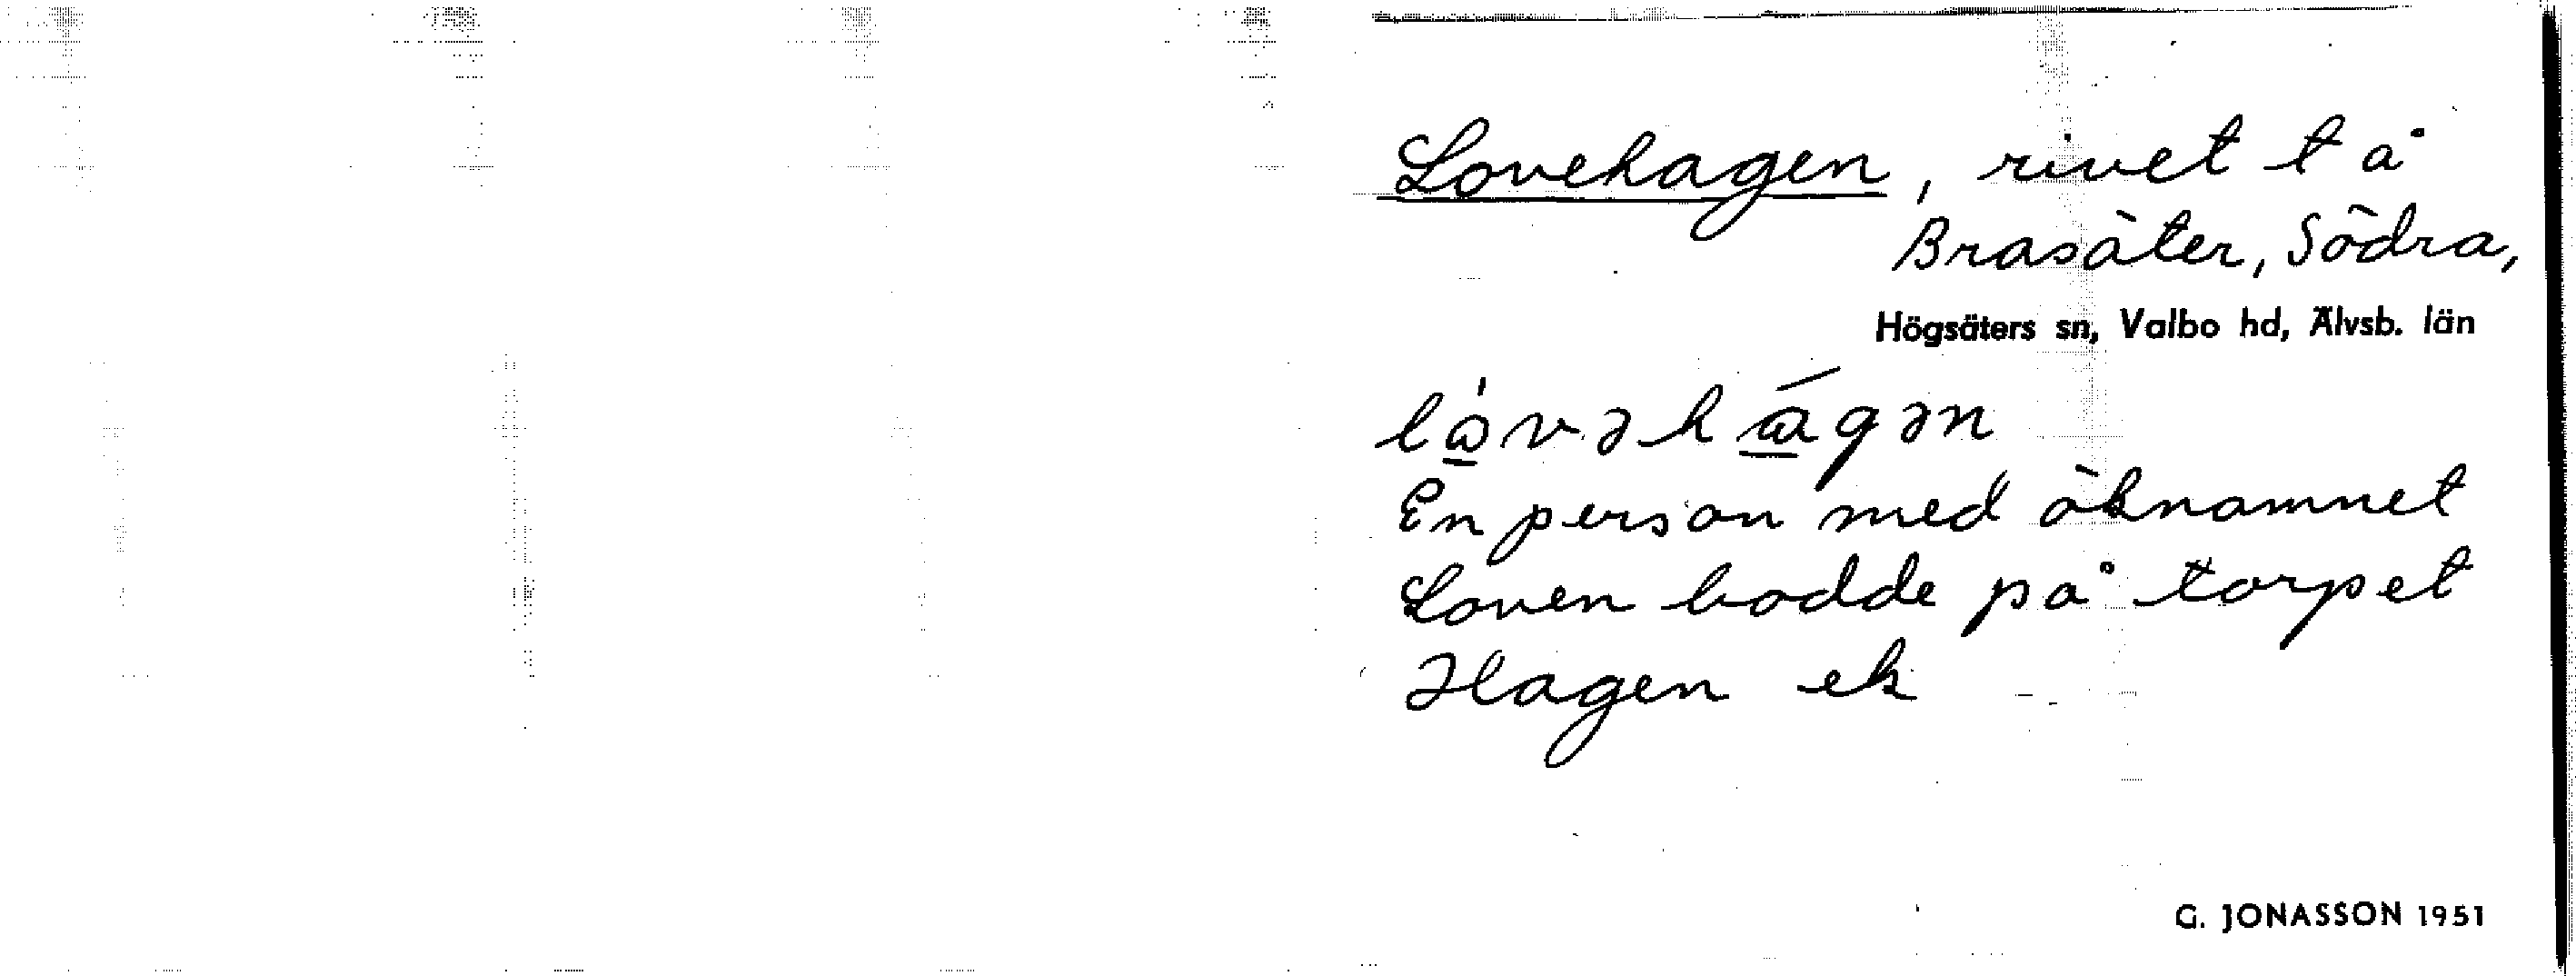 Lovehagen, rivet tå
Brasäter, Södra,
Högsäters sn, Valbo hd, Älvsb. län
En person med öknamnet
Loven bodde på torpet
Hagen ek
G. JONASSON 1951